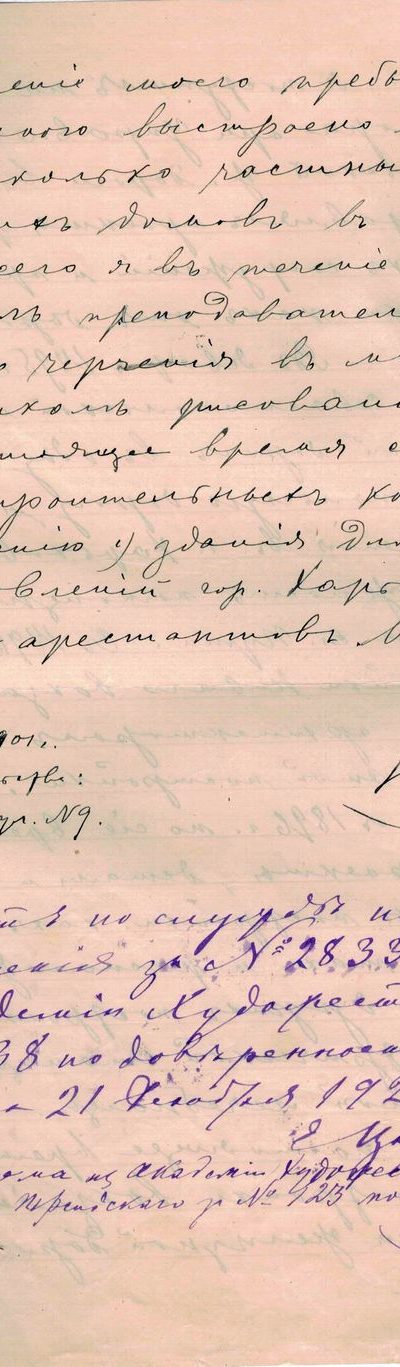 еніе моего пребы
ного выстроено
сколько частны
ихъ домовъ въ
сего я въ теченіе
лъ преподавател
черченія въ
рисовані
тоящее время с
троительныхъ ко
енію 1) зданія для
вленій гор. Харь
арестантовъ М
901.
ул. №9.
по службѣ
ченія за № 2833
деміи Художест
38 по довѣренност
21 Декабря 192
Е
ома из Академіи Художес
№ 123 по